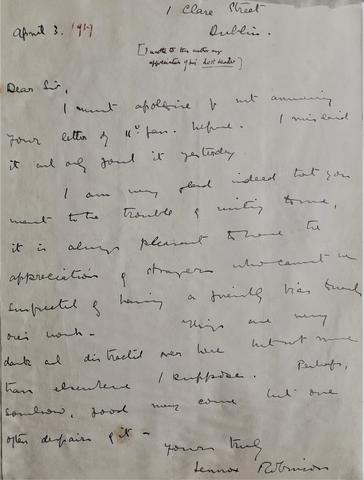 1 Clare Street
April 3. 1919
Dublin.
[I wrote to the author my
appreciation of his Lost Leader]
Dear Sir,
I must apologise for not answering
your letter of 11th Jan. before. I mislaid
it and only found it yesterday
I am very glad indeed that you
went to the trouble of writing to me,
it is always pleasant to have the
appreciation of strangers who cannot be
suspected of having a friendly bias towards
one's work - Things are very
dark and distracted over here but not more
than elsewhere I suppose. Perhaps,
somehow, good may come but one
often despairs of it -
Yours truly
Lennox Robinson